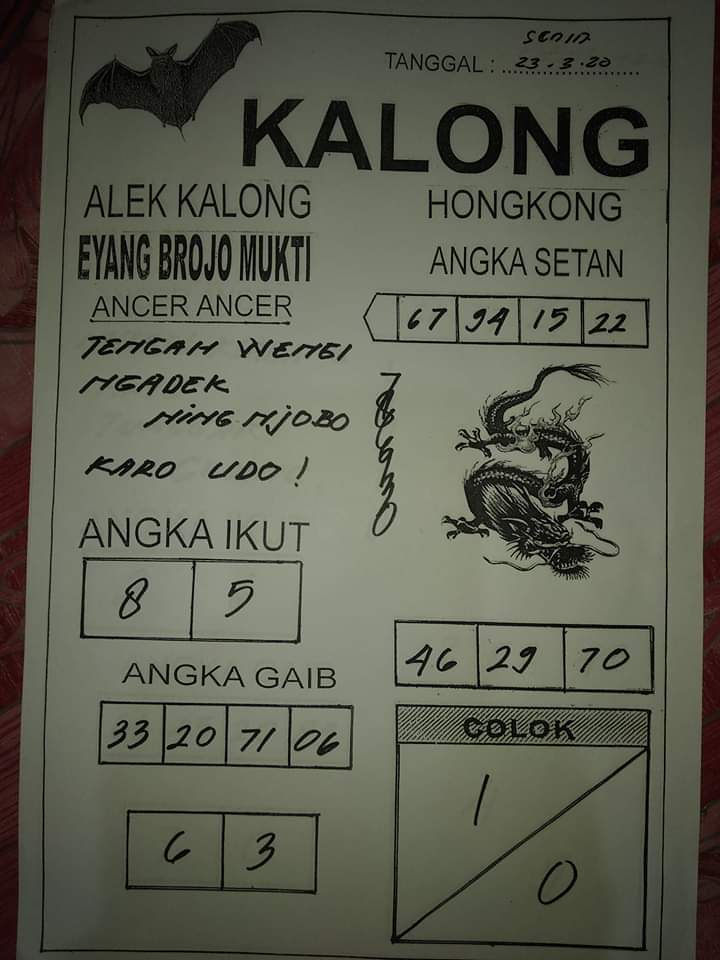 SENIN
TANGGAL : 23.3.20
KALONG
ALEK KALONG
HONGKONG
EYANG BROJO MUKTI
ANGKA SETAN
ANCER ANCER
67 94 15 22
TENGAH WENGI
NGADEK
NING NJOBO
KARO UDO !
7
ANGKA IKUT
8 5
46 29 70
ANGKA GAIB
33 20 71 06
COLOK
1
0
6 3